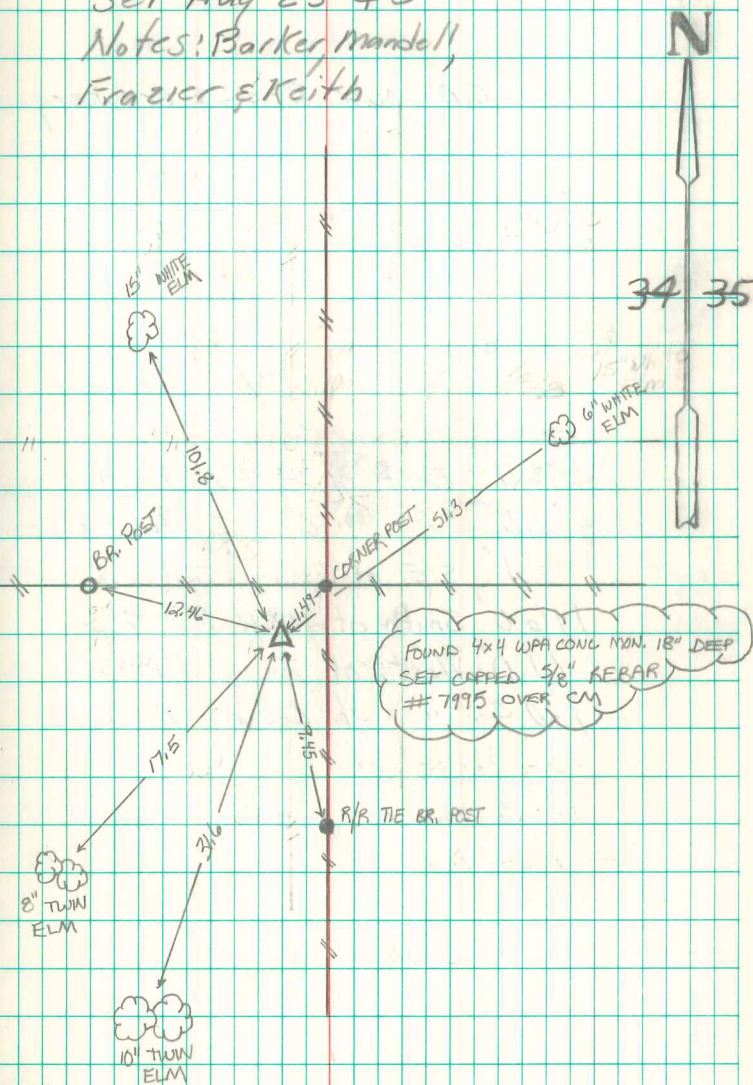 Notes: Barker, Mandell,
Frazier & Keith
N
34 35
15" WHITE
ELM
6" WHITE
ELM
101.8
51.3
BR. POST
CORNER POST
12.46
1.49
FOUND 4x4 WPA CONC MON. 18" DEEP
SET CAPPED 5/8" REBAR
# 7995 OVER CM
17.5
9.45
R/R TIE BR. POST
8" TWIN
ELM
10" TWIN
ELM